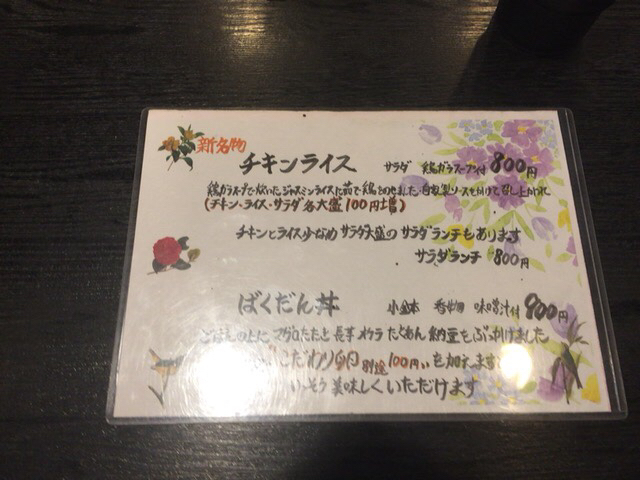 新名物
チキンライス サラダ 鶏ガラスープ付 800円
鶏ガラスープで炊いたジャスミンライスに茹で鶏をのせました。自家製ソースをかけて召し上がれ
(チキン・ライス・サラダ各大盛100円増)
チキンとライス少なめ サラダ大盛のサラダランチもあります
サラダランチ 800円
ばくだん丼 小鉢 香物 味噌汁付 900円
ごはんの上にマグロたたき 長芋 オクラ たくあん 納豆をぶっかけました
こだわり卵 別途100円 を加えますと
いっそう美味しくいただけます